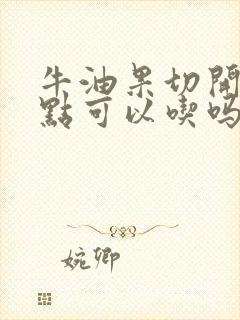 牛油果切開
點可以喫嗎
婉卿